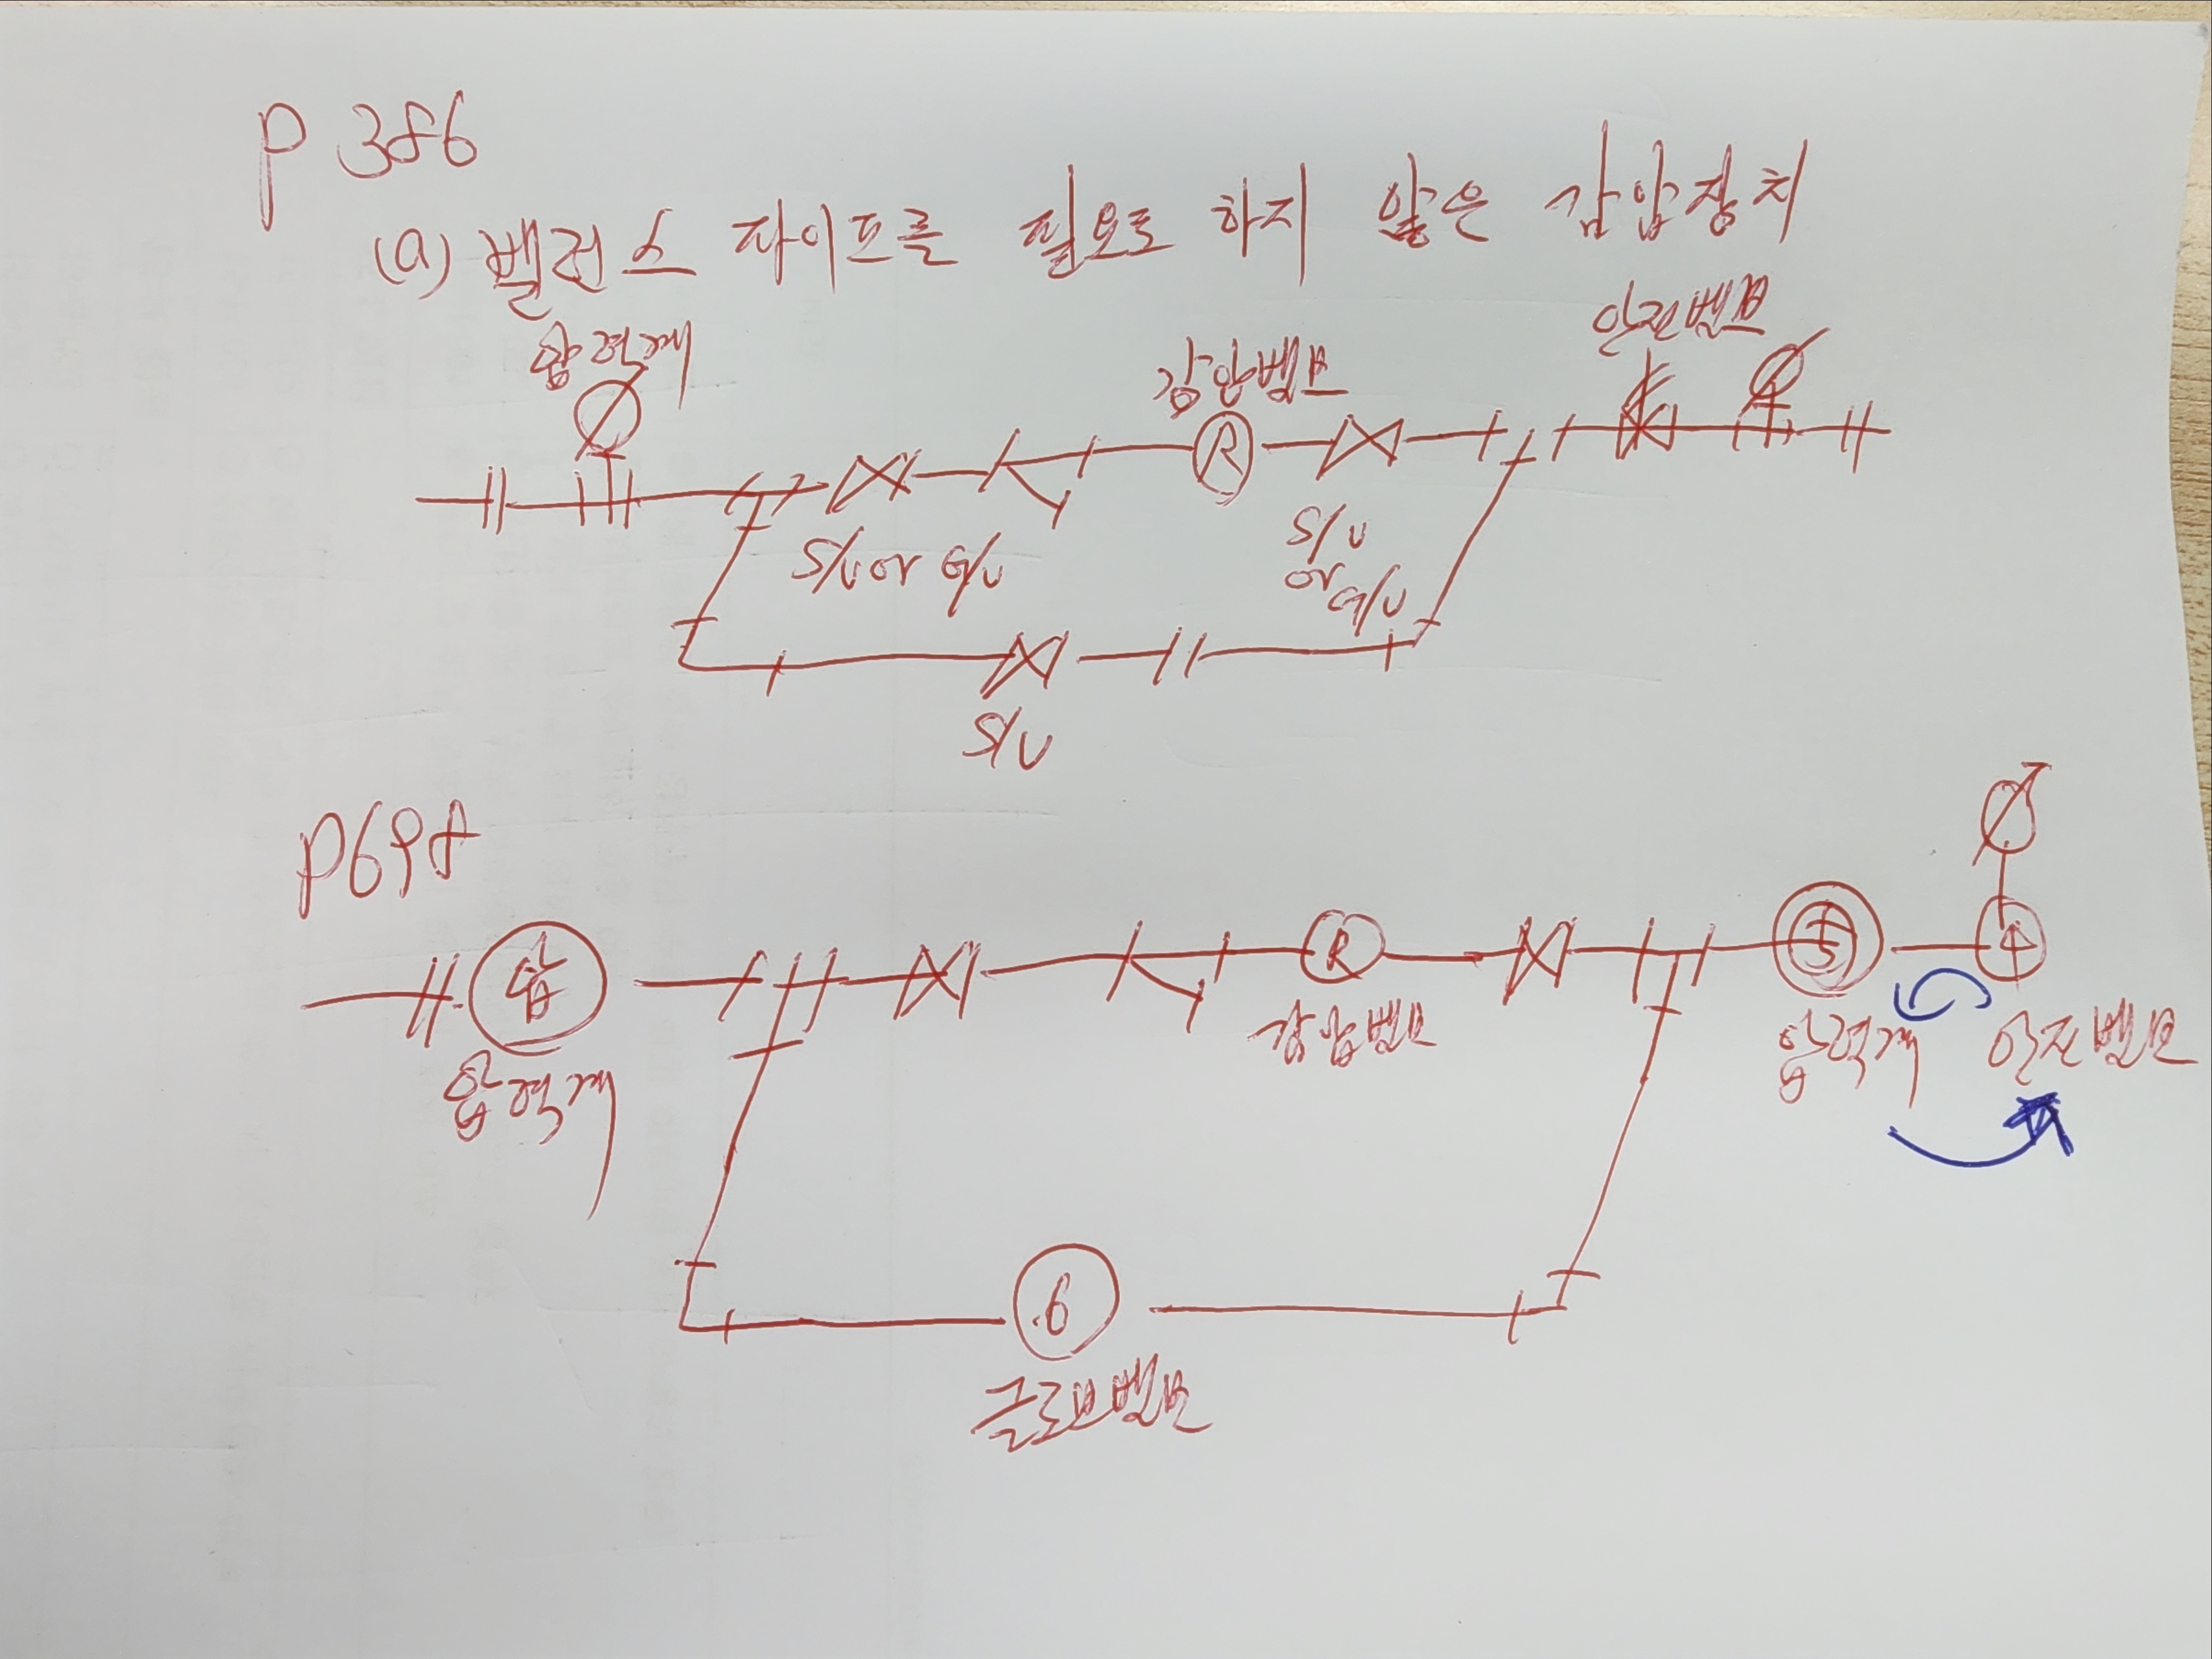 P 386
(a) 밸런스 파이프를 필요로 하지 않은 감압장치
안전밸브
압력계
감압밸브
R
S/V or G/V
S/V
or G/V
S/V
P698
R
감압밸브
압력계
안전밸브
압력계
6
글로브밸브